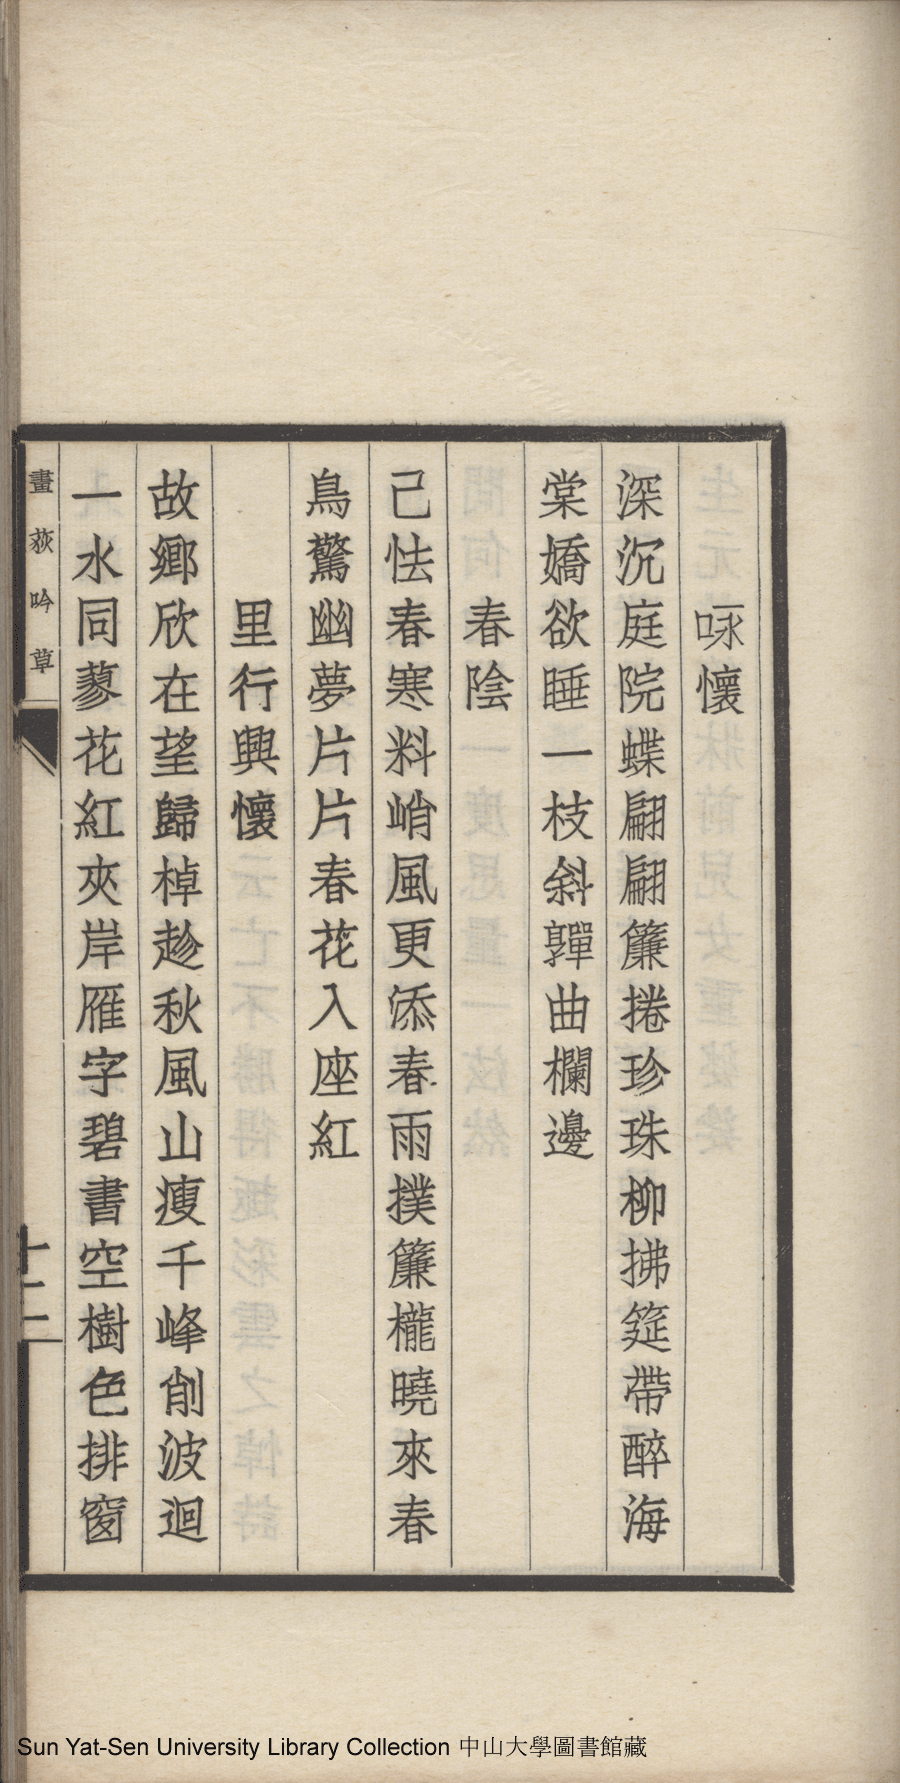 咏懷
深沉庭院蝶翩翩簾捲珍珠柳拂筵帶醉海
棠嬌欲睡一枝斜嚲曲欄邊
春陰
己怯春寒料峭風更添春雨撲簾櫳曉來春
鳥驚幽夢片片春花入座紅
里行興懷
故鄉欣在望歸棹趁秋風山瘦千峰削波迴
一水同蓼花紅夾岸雁字碧書空樹色排窗
畫荻吟草
十二
Sun Yat-Sen University Library Collection 中山大學圖書館藏